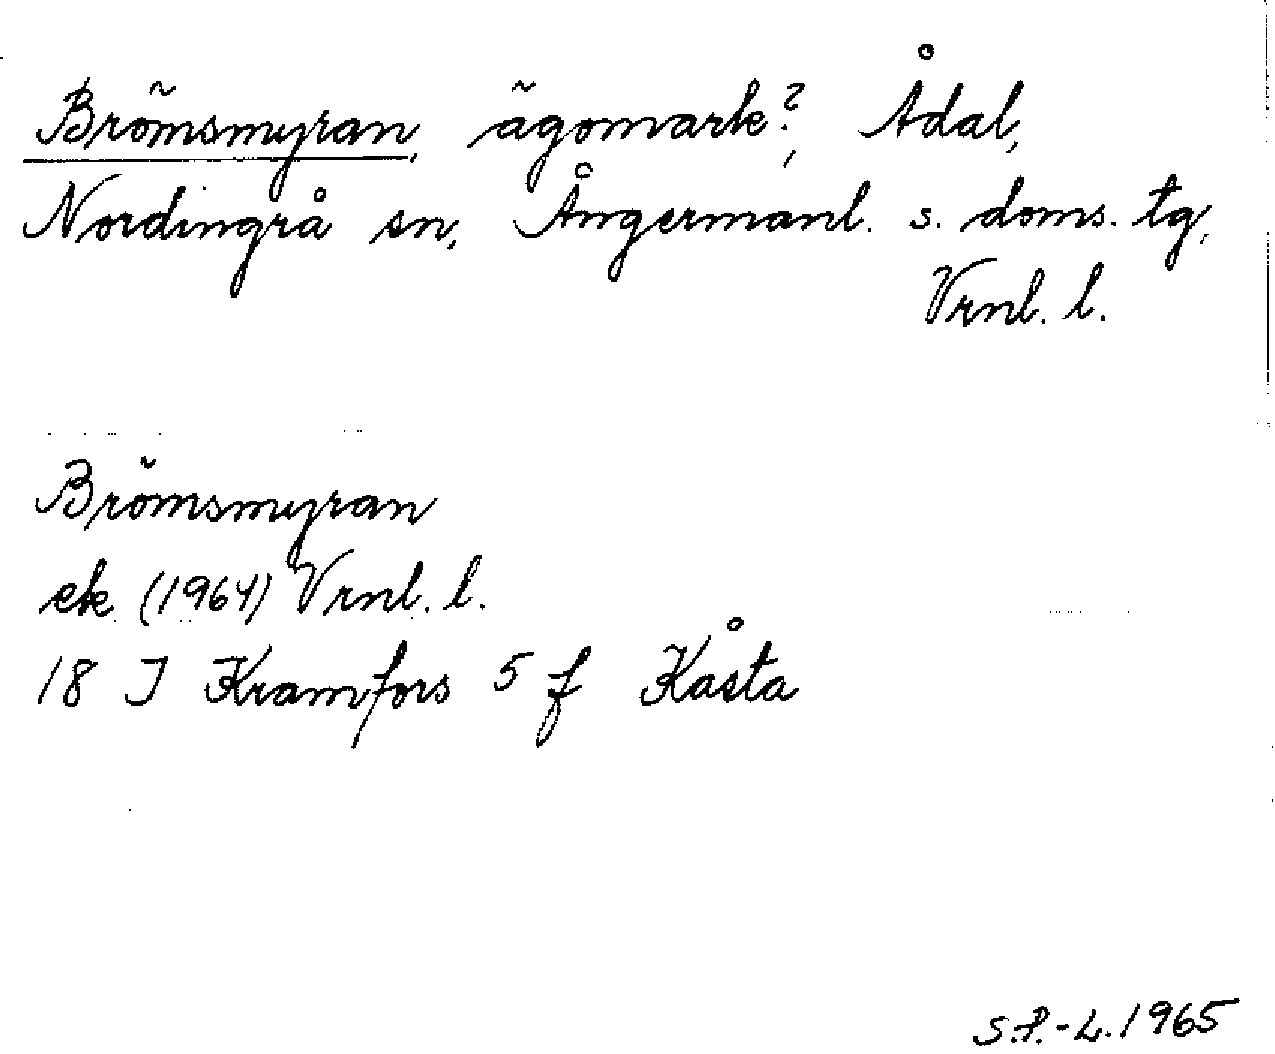 Brömsmyran, ägomark?, Ådal,
Nordingrå sn, Ångermanl. s. doms. tg,
Vrnl. l.
Brömsmyran
ek (1964) Vrnl. l.
18 I Kramfors 5 f Kåsta
S.P.-L. 1965